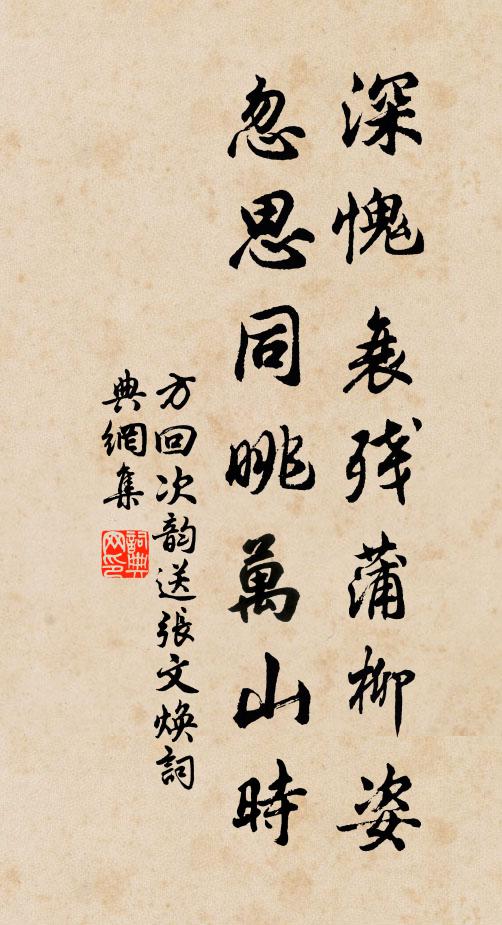 深愧衰残蒲柳姿
忽思同眺萬山時
方回次韵送張文焕詞
典網集
詞典网印